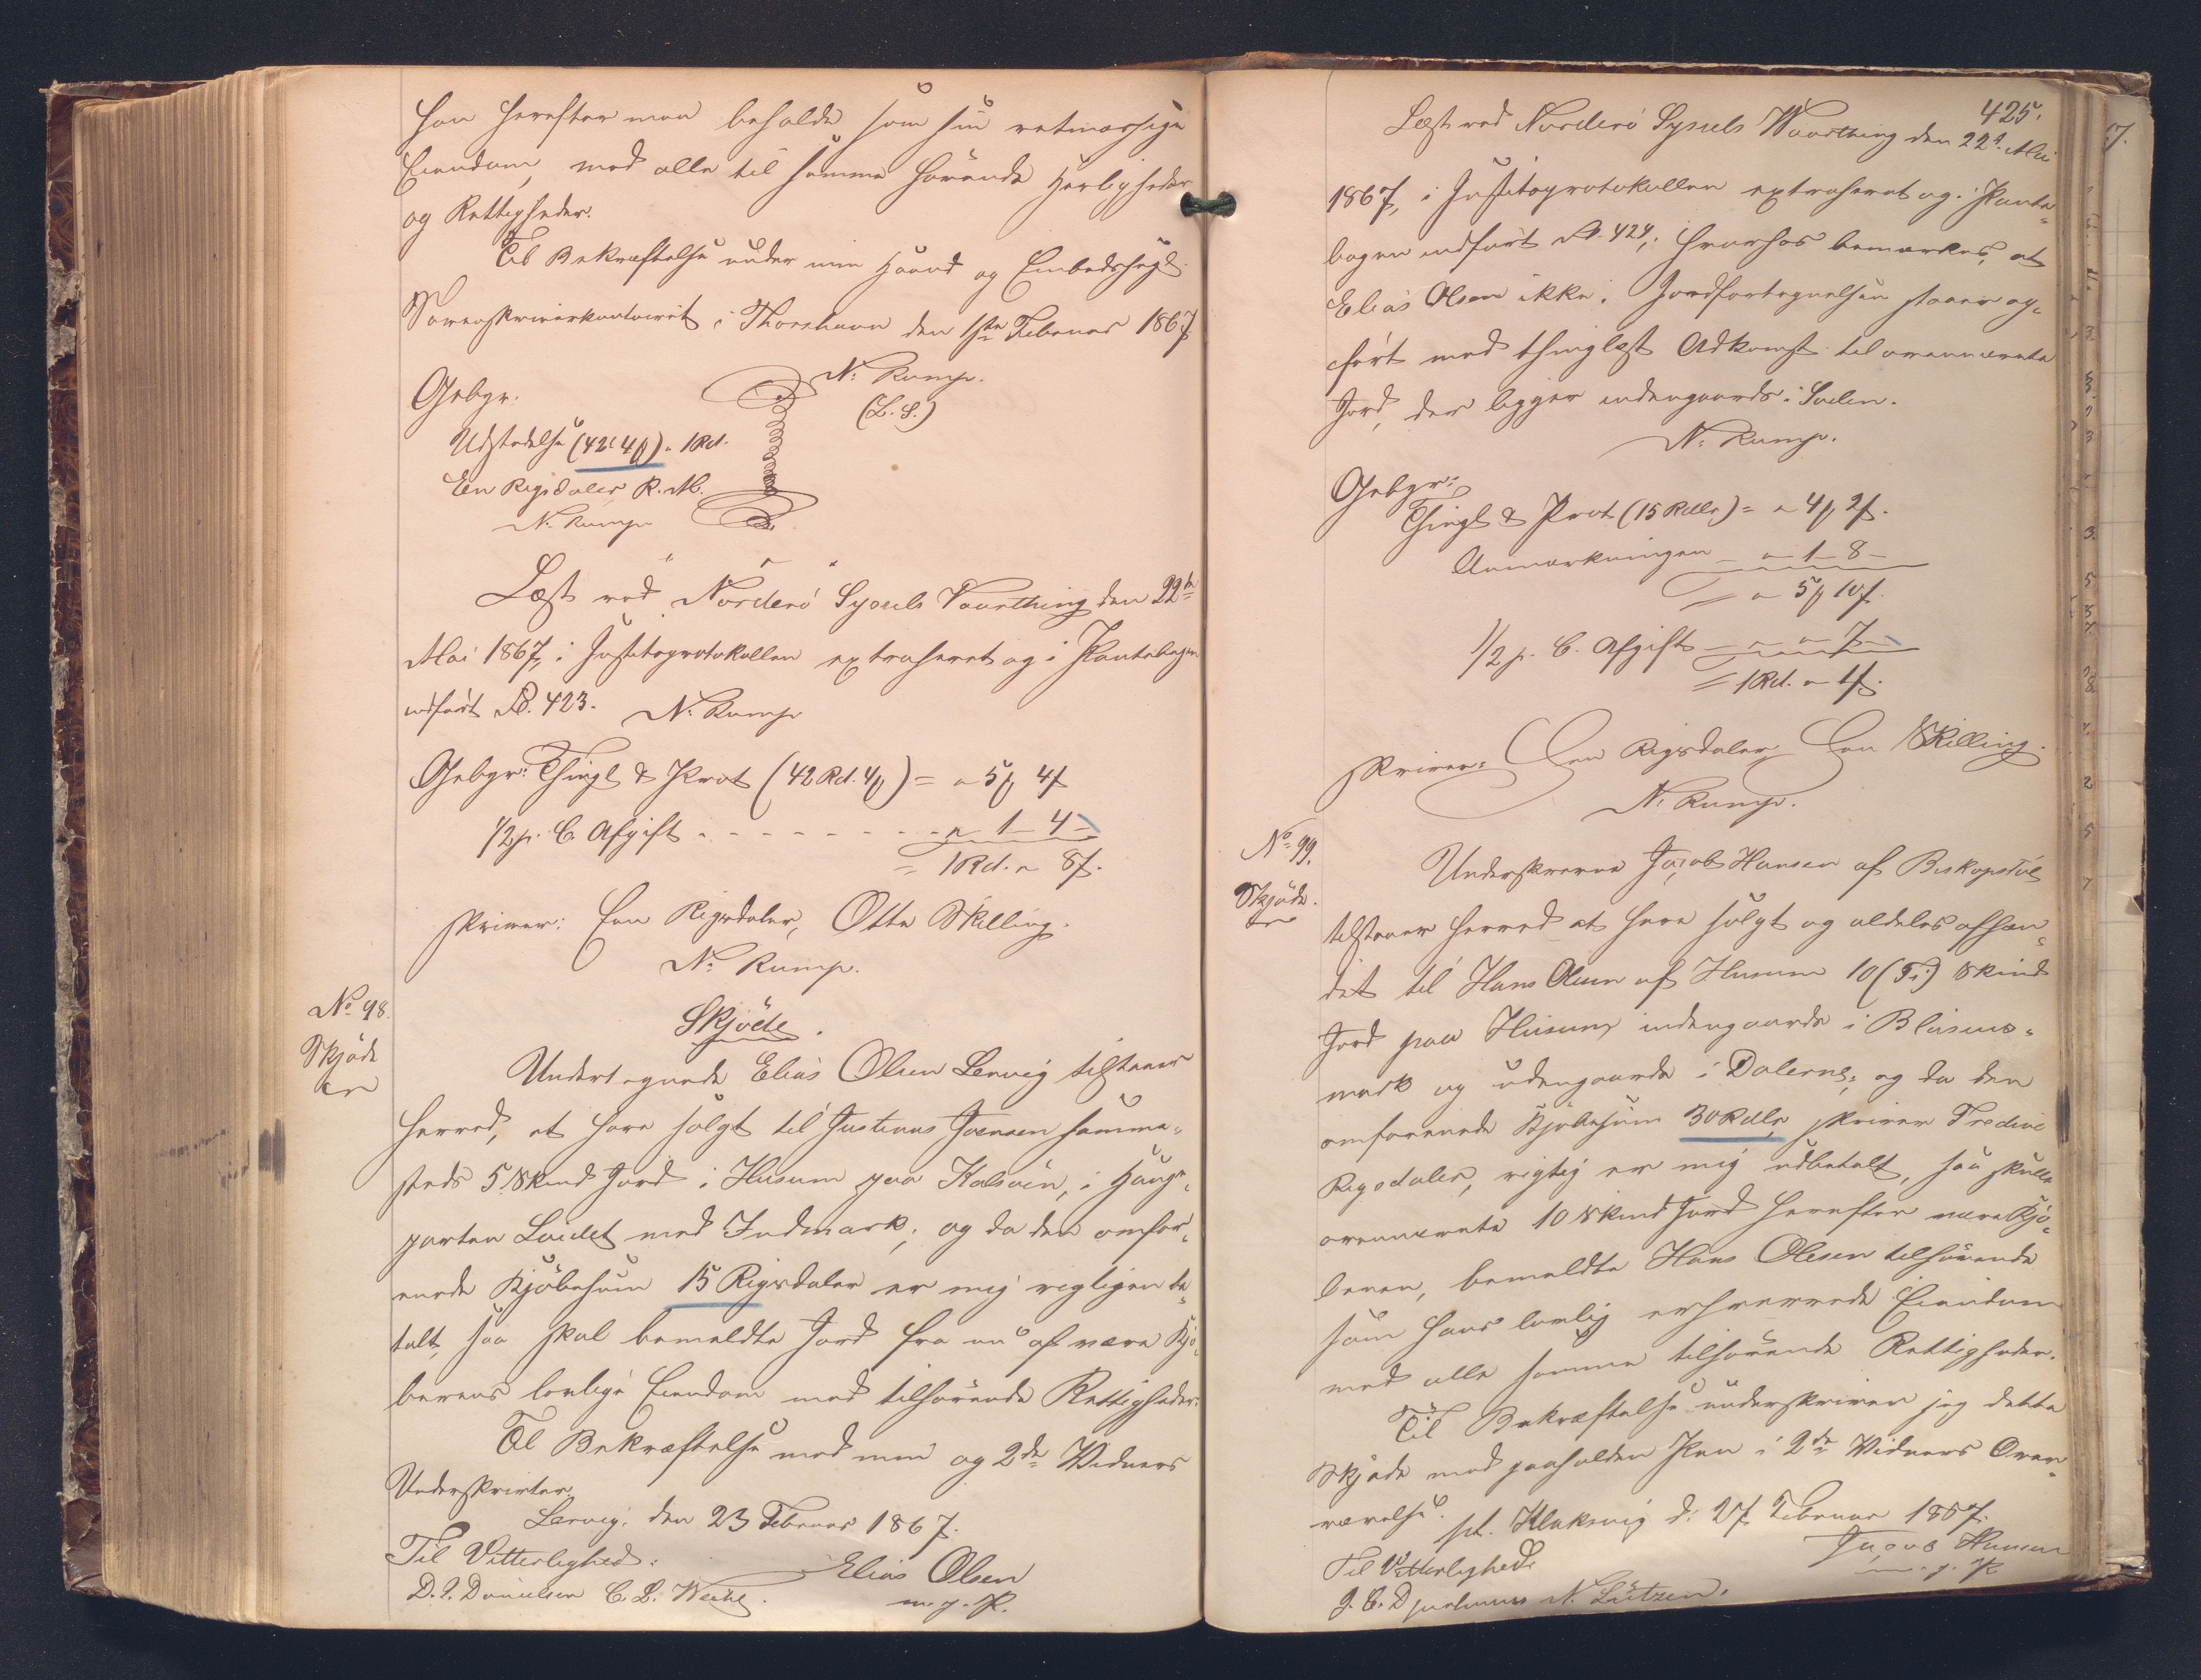 han herefter maa beholde som sin retmæssige
Eiendom, med alle til samme hørende Herligheder
og Rettigheder.
Til Bekræftelse under min Haand og Embedssegl.
Sorenskriverkontoiret i Thorshavn den 1ste Februar 1867.
N. Rump.
(L. S.)
Gebyr.
Udstedelse (42 " 4 ß) " 1 Rd.
Een Rigsdaler R. M.
N. Rump
Læst ved Norderø Syssels Vaarthing den 22de
Mai 1867, i Justitsprotokollen extraheret og i Pantebogen
indført S. 423. N. Rump
Gebyr: Thingl & Prot (42 Rd. 4 ß) = " 5 ß 4 f
1/2 p. C. Afgift - - - - - - - " 1 - 4 -
= 1 Rd. " 8 f.
skriver: Een Rigsdaler, Otte Skilling.
N. Rump.
No 98.
Skjøde
Skjøde.
Undertegnede Elias Olsen Lervig tilstaaer
herved, at have solgt til Justinus Joensen samme-
steds 5 Skind Jord i Husum paa Kalsøin, i Hauge-
parten Lådet med Indmark; og da den omfor-
enede Kjøbesum 15 Rigsdaler er mig rigtigen be-
talt, saa skal bemeldte Jord fra nu af være Kjø-
berens lovlige Eiendom med tilhørende Rettigheder.
Til Bekræftelse med min og 2de Vidners
Underskrifter.
Lervig, den 23 Februar 1867.
Til Vitterlighed: Elias Olsen
D. J. Danielsen C. L. Weihe. m. p. P.
425.
Læst ved Norderø Syssels Vaarthing den 22d. Mai
1867, i Justitsprotokollen extraheret og i Pante-
bogen indført S. 424; hvorhos bemærkes, at
Elias Olsen ikke i Jordfortegnelsen staaer op-
ført med thinglæst Adkomst til ovennævnte
Jord, der ligger indengaards i Suden.
N. Rump.
Gebyr:
Thingl & Prot (15 Rdlr) = " 4 ß 2 f.
Anmærkningen - " 1 - 8 -
= " 5 ß 10 f.
1/2 p. C. Afgift - " " 7 -
= 1 Rd. " 1 f.
skriver: Een Rigsdaler Een Skilling.
N. Rump.
No 99.
Skjøde.
Underskrevne Jacob Hansen af Biskopstøe
tilstaaer herved at have solgt og aldeles afhæn-
det til Hans Olesen af Husum 10 (Ti) Skind
Jord paa Husum, indengaards i Blåsens-
mark og udengaards i Dalerne; og da den
omforenede Kjøbesum 30 Rdlr, skriver Tredive
Rigsdaler, rigtig er mig udbetalt, saa skulle
ovennævnte 10 Skind Jord herefter være Kjø-
beren, bemeldte Hans Olesen tilhørende
som hans lovlig erhvervede Eiendom
med alle samme tilhørende Rettigheder.
Til Bekræftelse underskriver jeg dette
Skjøde med paaholden Pen i 2de Vidners Over-
værelse.
pt. Klaksvig d: 27 Februar 1867.
Til Vitterlighed: Jacob Hansen
J. C. Djurhuus N. Lützen. m. p. P.